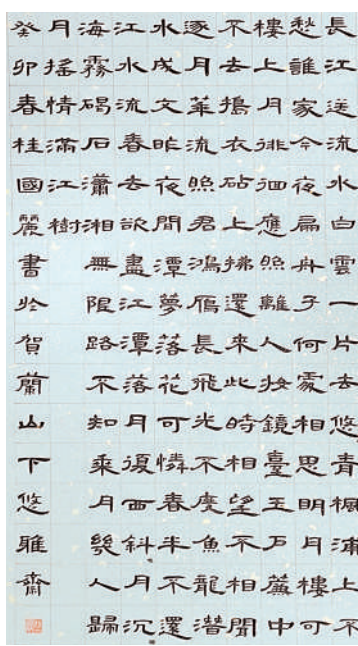 長江送流水白雲一片去悠青楓浦上不
愁誰家今夜扁舟子何處相思明月樓可
樓上月徘徊應照離人妝鏡臺玉戶簾中
不去搗衣砧上拂還來此時相望不相聞
逐月華流照君鴻鴈長飛光不度魚龍潛
水成文昨夜間潭夢落花可憐春半不還
江水流春去欲盡江潭落月復西斜月沉
海霧碣石瀟湘無限路不知乘月幾人歸
月搖情滿江樹
癸卯春桂國麗書於賀蘭山下悠雅齋